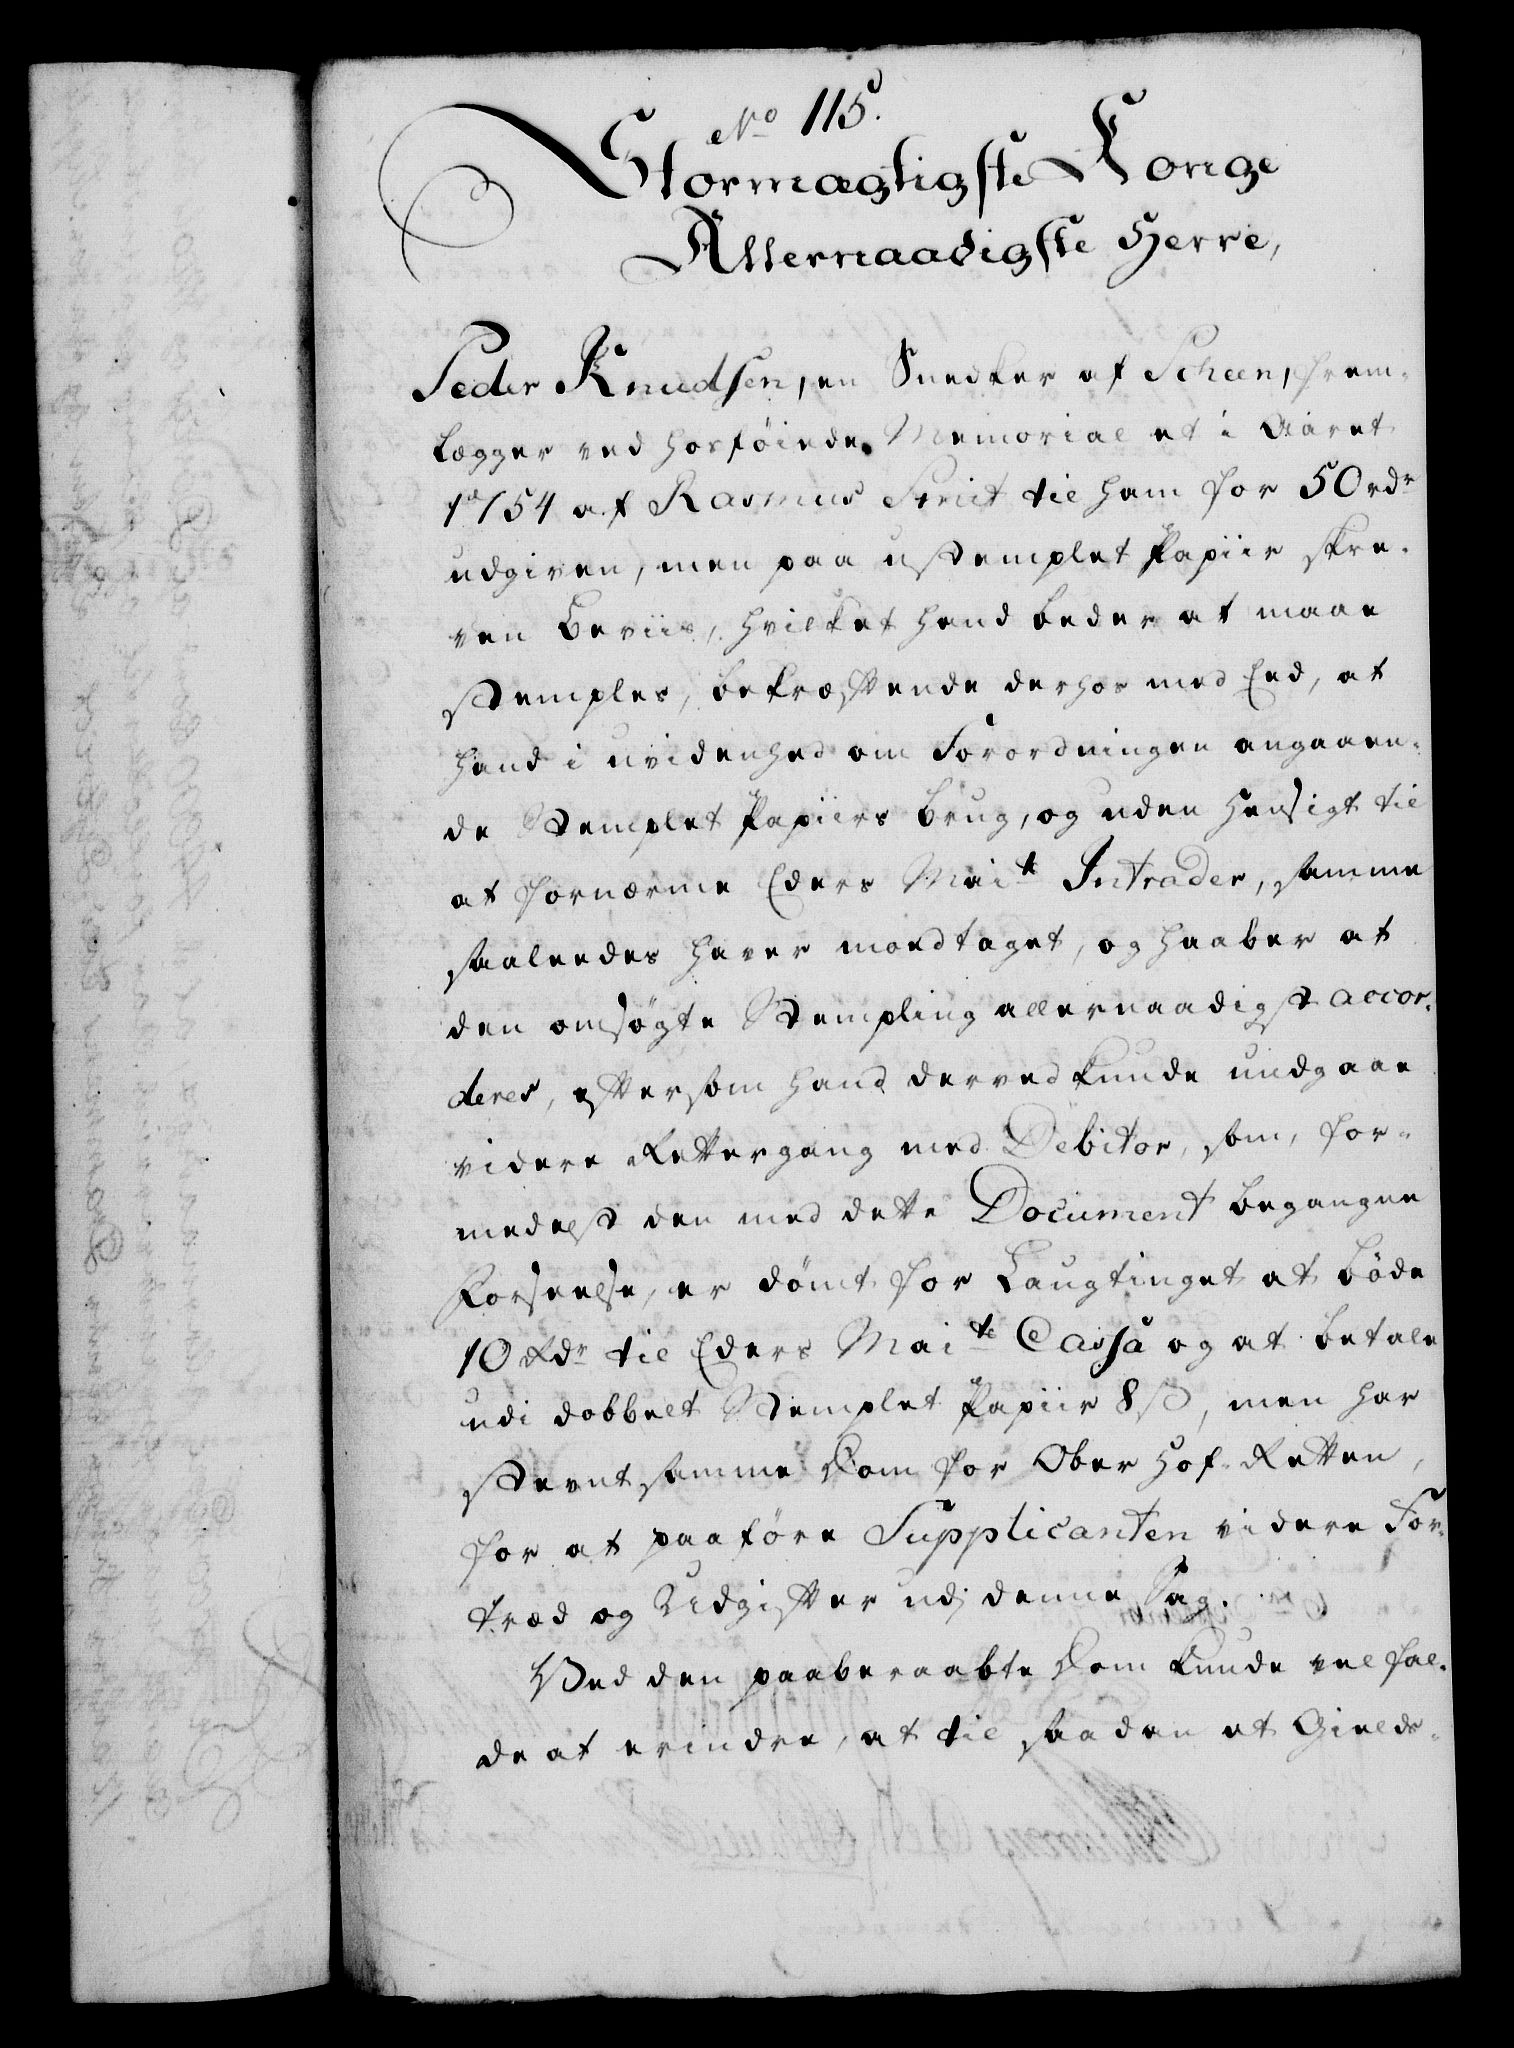 No 115.
Stormægtigste Konge
Allernaadigste Herre,
Peder Knudsen, en Snedker af Scheen, frem-
lægger ved hosføiede Memorial et i Aaret
1754 af Rasmus Smit til ham for 50 rdr
udgiven, men paa ustemplet Papiir skre-
ven Beviis, hvilket hand beder at maae
stemples, bekræftende derhos med Eed, at
hand i uvidenhed om Forordningen angaaen-
de Stemplet Papiirs brug, og uden Hensigt til
at fornærme Eders Maite Intrader, samme
saaleedes haver modtaget, og haaber at
den omsøgte Stempling allernaadigst accor-
deres, eftersom hand derved kunde undgaae
videre Rettergang med Debitor, som, for-
medelst den med dette Document begangne
Forseelse, er dömt for Laugtinget at böde
10 Rdr til Eders Maite Cassa og at betale
udi dobbelt Stemplet Papiir 8 s, men har
stevnt samme Dom for Ober Hof-Retten,
for at paaføre Supplicanten videre For-
træd og Udgifter udj denne Sag.
Ved den paaberaabte Dom kunde vel fal-
de at erindre, at til saadan et Gields-